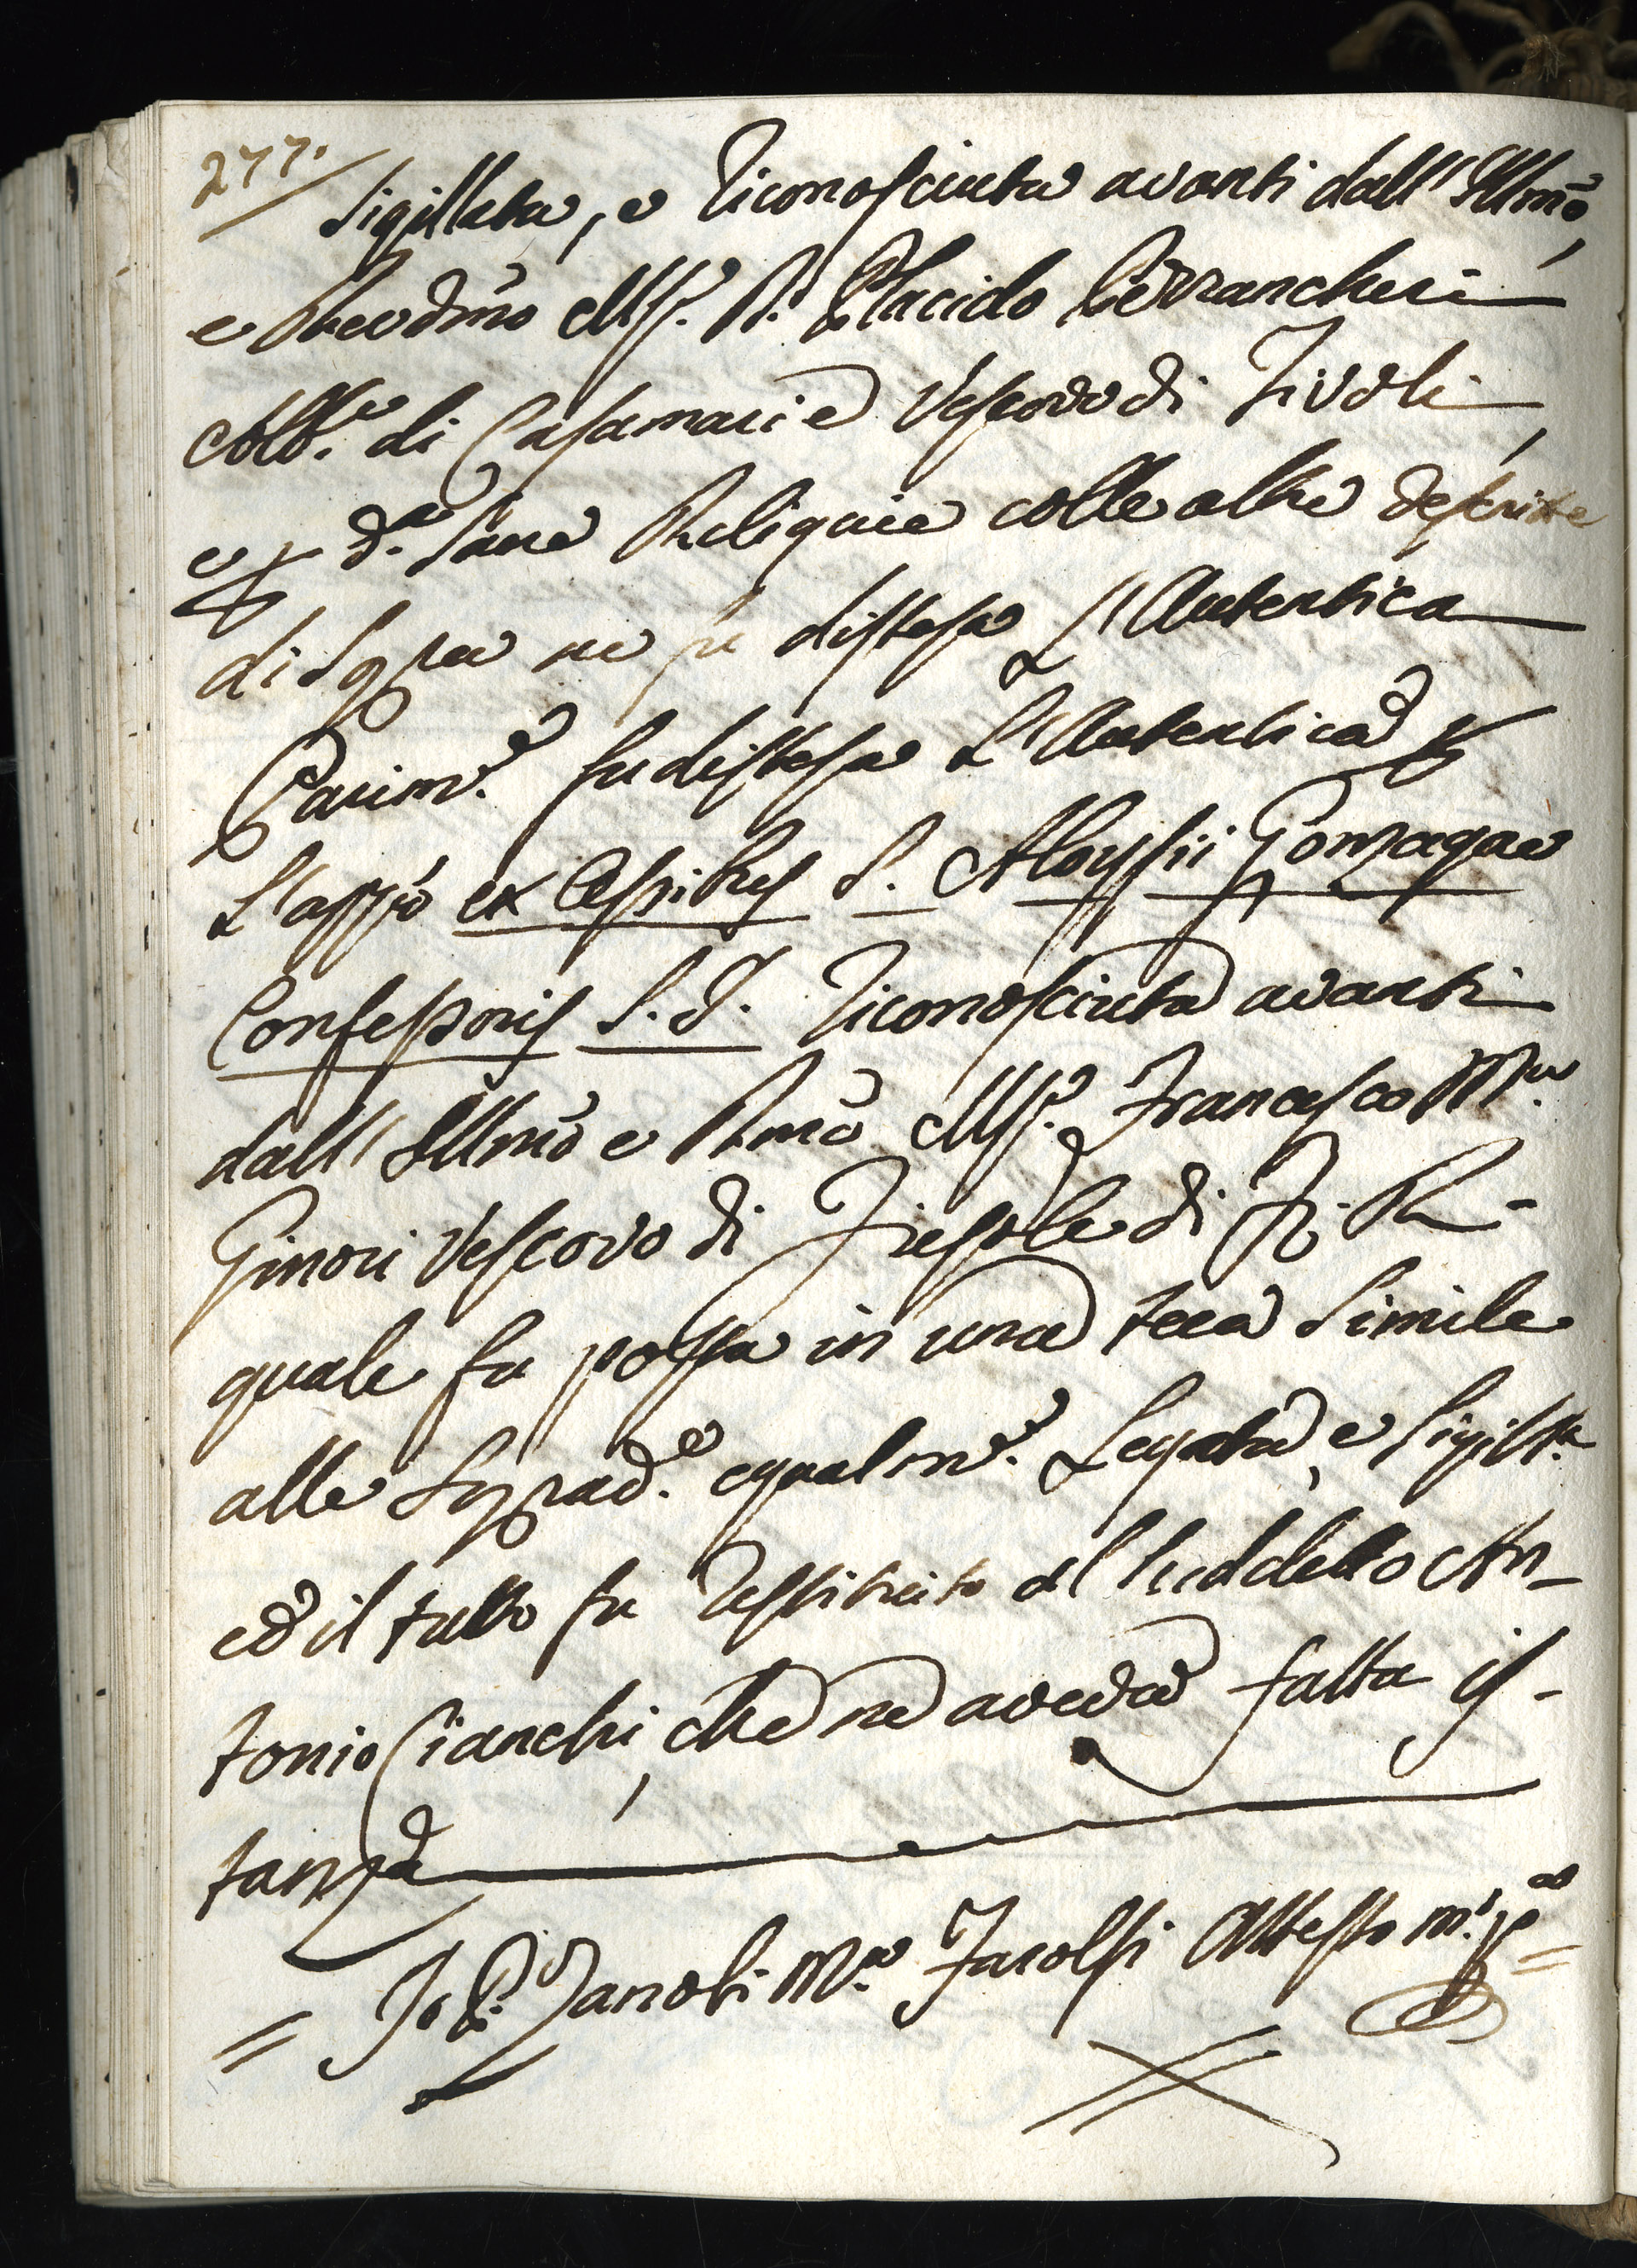 277.
Sigillata, e riconosciuta avanti dall' Illmo,
e Revdmo Mſ.e P. Placido Pezzancheri
Abb.e di Casamari e Vescovo di Tivoli,
e p d.e Sacre Reliquie colle altre descritte
di Sopra ne fu distesa l'Autentica
Parim.e fu distesa l'Autentica p
l'appo ex Cineribus S. Aloysii Gonzagae
Confessoris S. J. riconosciuta avanti
dall' Illmo e Rmo Mſ.e Francesco M.a
Ginori Vescovo di Fiesole di F. R.
quale fu posta in una teca Simile
alle Soprad.e egualm.e Legata, e Sigill.a
ed il tutto fu restituito al Suddetto An-
tonio Cianchi, che ne aveva fatta is-
tanza
= Io P. Zanobi M.a Facolsi Attesto m.o pa =